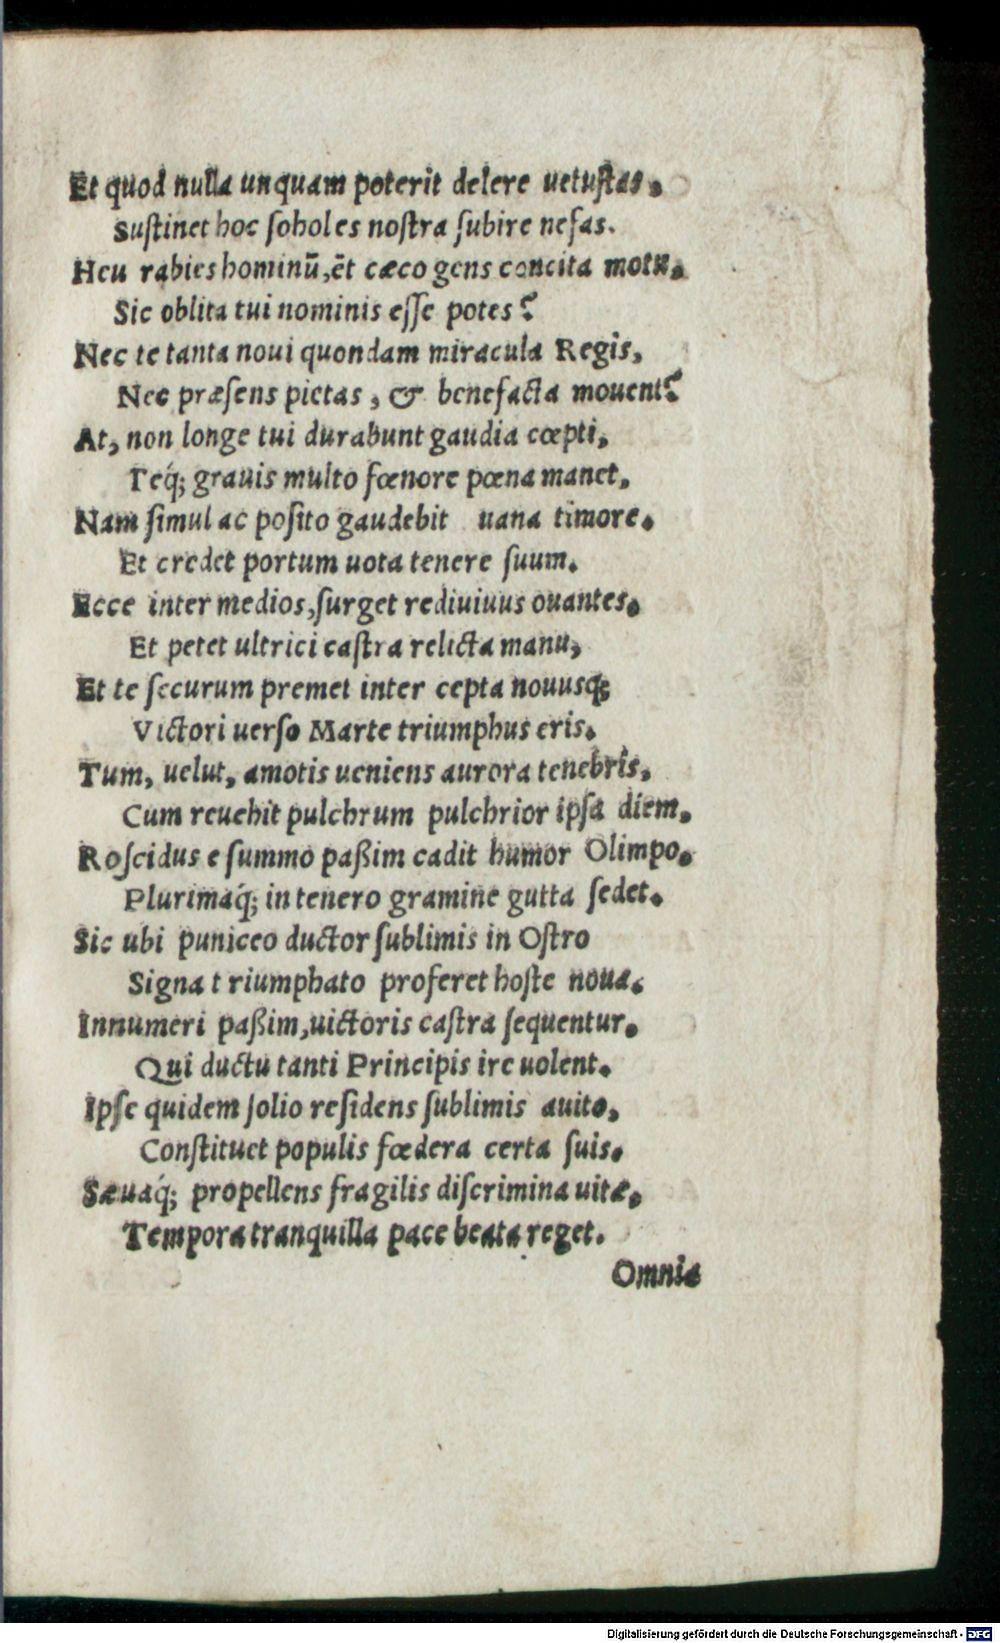 Et quod nulla unquam poterit delere uetuſtas.
Suſtinet hoc ſoboles noſtra ſubire nefas.
Heu rabies hominū, ēt cæco gens concita motu.
Sic oblita tui nominis eſſe potes?
Nec te tanta noui quondam miracula Regis,
Nec præſens pietas, & benefacta mouent?
At, non longe tui durabunt gaudia cœpti,
Teq́; grauis multo fœnore pœna manet.
Nam ſimul ac poſito gaudebit uana timore.
Et credet portum uota tenere ſuum.
Ecce inter medios, ſurget rediuiuus ouantes.
Et petet ultrici caſtra relicta manu,
Et te ſecurum premet inter cepta nouusq;
Victori uerſo Marte triumphus eris.
Tum, uelut, amotis ueniens aurora tenebris,
Cum reuehit pulchrum pulchrior ipſa diem.
Roſcidus e ſummo paßim cadit humor Olimpo.
Plurimaq́; in tenero gramine gutta ſedet.
Sic ubi puniceo ductor ſublimis in Oſtro
Signa t riumphato proferet hoſte noua.
Innumeri paßim, uictoris caſtra ſequentur.
Qui ductu tanti Principis ire uolent.
Ipſe quidem ſolio reſidens ſublimis auito,
Conſtituet populis fœdera certa ſuis.
Sæuaq́; propellens fragilis diſcrimina uitæ,
Tempora tranquilla pace beata reget.
Omnia
Digitalisierung gefördert durch die Deutsche Forschungsgemeinschaft - DFG